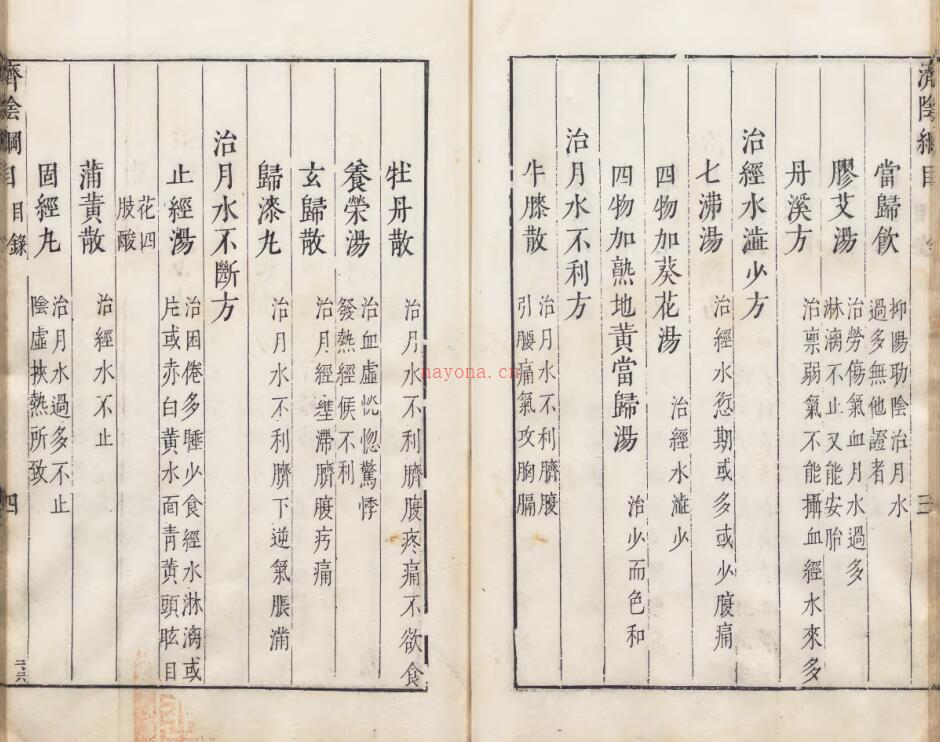 濟陰綱目
三
當歸飲
抑陽助陰治月水
過多無他證者
膠艾湯
治勞傷氣血月水過多
淋漓不止又能安胎
丹溪方
治稟弱氣不能攝血經水來多
治經水澁少方
七沸湯
治經水愆期或多或少腹痛
四物加葵花湯
治經水澁少
四物加熟地黃當歸湯
治少而色和
治月水不利方
牛膝散
治月水不利臍腹
引腰痛氣攻胸膈
牡丹散
治月水不利臍腹疼痛不欲食
養榮湯
治血虛恍惚驚悸
發熱經候不利
玄歸散
治月經壅滯臍腹㽲痛
歸漆丸
治月水不利臍下逆氣脹滿
治月水不斷方
止經湯
治困倦多睡少食經水淋漓或
片或赤白黃水面靑黃頭眩目
花四
肢酸
蒲黃散
治經水不止
固經丸
治月水過多不止
陰虛挾熱所致
濟陰綱目
目錄
四
nayona.cn